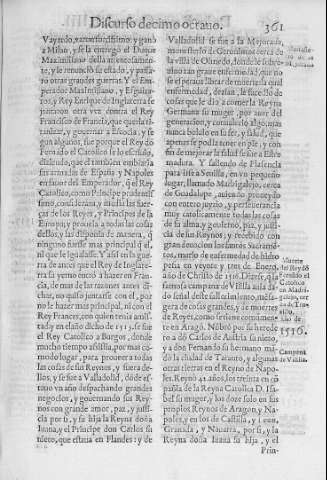 Discurso decimo octauo. 361
Vayardo, varonsurdissimo: y ganò
a Milan, y se la entregò el Duque
Maximiliano
y le renunciò su estado, y passa-
ron otras grandes guerras. Y el Em-
perador Maximiliano, y Esguiza-
ros, y Rey Enrique de Inglaterra se
juntaron otra vez contra el Rey
Francisco de Francia, que queria
tyranizar, y governar a Escocia, y se-
gun algunos, fue porque el Rey don
Fernando el Catolico se lo escriuio,
diziendo, que el tambien embiaria
sus armadas de España y Napoles
en fauor del Emperador, q el Rey
Catolico, como Principe prudentis-
simo, consideraua, y media las fuer-
ças de los Reyes, y Principes de la
Europa, y proueia a todas las cosas
dellos, y las disponia de manera, q
ninguno fuesse mas principal q el,
ni que se le igualasse. Y assi en la guer-
ra de antes que el Rey de Inglater-
ra su yerno entrò a hazer en Fran-
cia, de mas de las razones antes di-
chas, no quiso juntarse con el, por
no le hazer mas principal, ni con el
Rey Frances, con quien tenia amis-
tad y en el año dicho de 1515. se fue
el Rey Catolico a Burgos, donde
mucho tiempo assistia, por mas co-
modo lugar, para proueer a todas
las cosas de sus Reynos, y fuera de-
llos, y se fue a Valladolid, dõde es-
tuuo vn año despachando grandes
negocios, y gouernando sus Rey-
nos con grande amor, paz, y justi-
cia por si, y su hija la Reyna doña
Iuana, y el Principe don Carlos su
nieto, que estaua en Flandes: y de
Valladolid se fue a la Mejorada,
monesterio de Geronimos cerca de
la villa de Olmedo, donde le sobre-
uino tan grande enfermedad, que
perdio la salud, y con la qual
enfermedad, dezian, le sucedio de
cosas que le dio a comer la Reyna
Germana su muger, por auer del
generacion, y como consumido algo, mas
nunca boluio en su ser, y salud, que
apenas se podia tener en pie, y con
fin de mejorar la salud se fue a Estre
madura. Y saliendo de Plasencia
para ir se a Seuilla, en vn pequeño
lugar, llamado Madrigalejo, cerca
de Guadalupe, auiendo proueydo
con entero juyzio, y perseuerancia
muy catolicamente todas las cosas
de su alma, y gouierno, paz, y justi-
cia de sus Reynos, y recebido con
gran deuocion los santos Sacramẽ-
tos, murio de enfermedad de hidro
pesia en veynte y tres de Enero,
año de Christo de 1516. Dizese, que la
famosa campana de Vililla auia da-
do señal deste fallecimiento, medio
año antes, y de otras muertes de
Reyes, como se tiene comunmen-
te en Aragõ. Nõbrò por su herede
ro a dõ Carlos de Austria su nieto,
y a don Fernando su hermano mã
dò la ciudad de Taranto, y algunas
otras tierras en el Reyno de Napo-
les. Reynò 42 años, los treinta en cõ
pañia de la Reyna Catolica D. Isa-
bel su muger, y los doze solo en sus
propios Reynos de Aragon, y Na-
poles, y en los de Castilla, y Leon,
Granada, y Nauarra, por si, y la
Reyna doña Iuana su hija, y el
Prin-
Muerte
del Rey dõ
Fernãdo el
Catolico
en Madri-
galejo,
1516.
Campana
de Vililla.